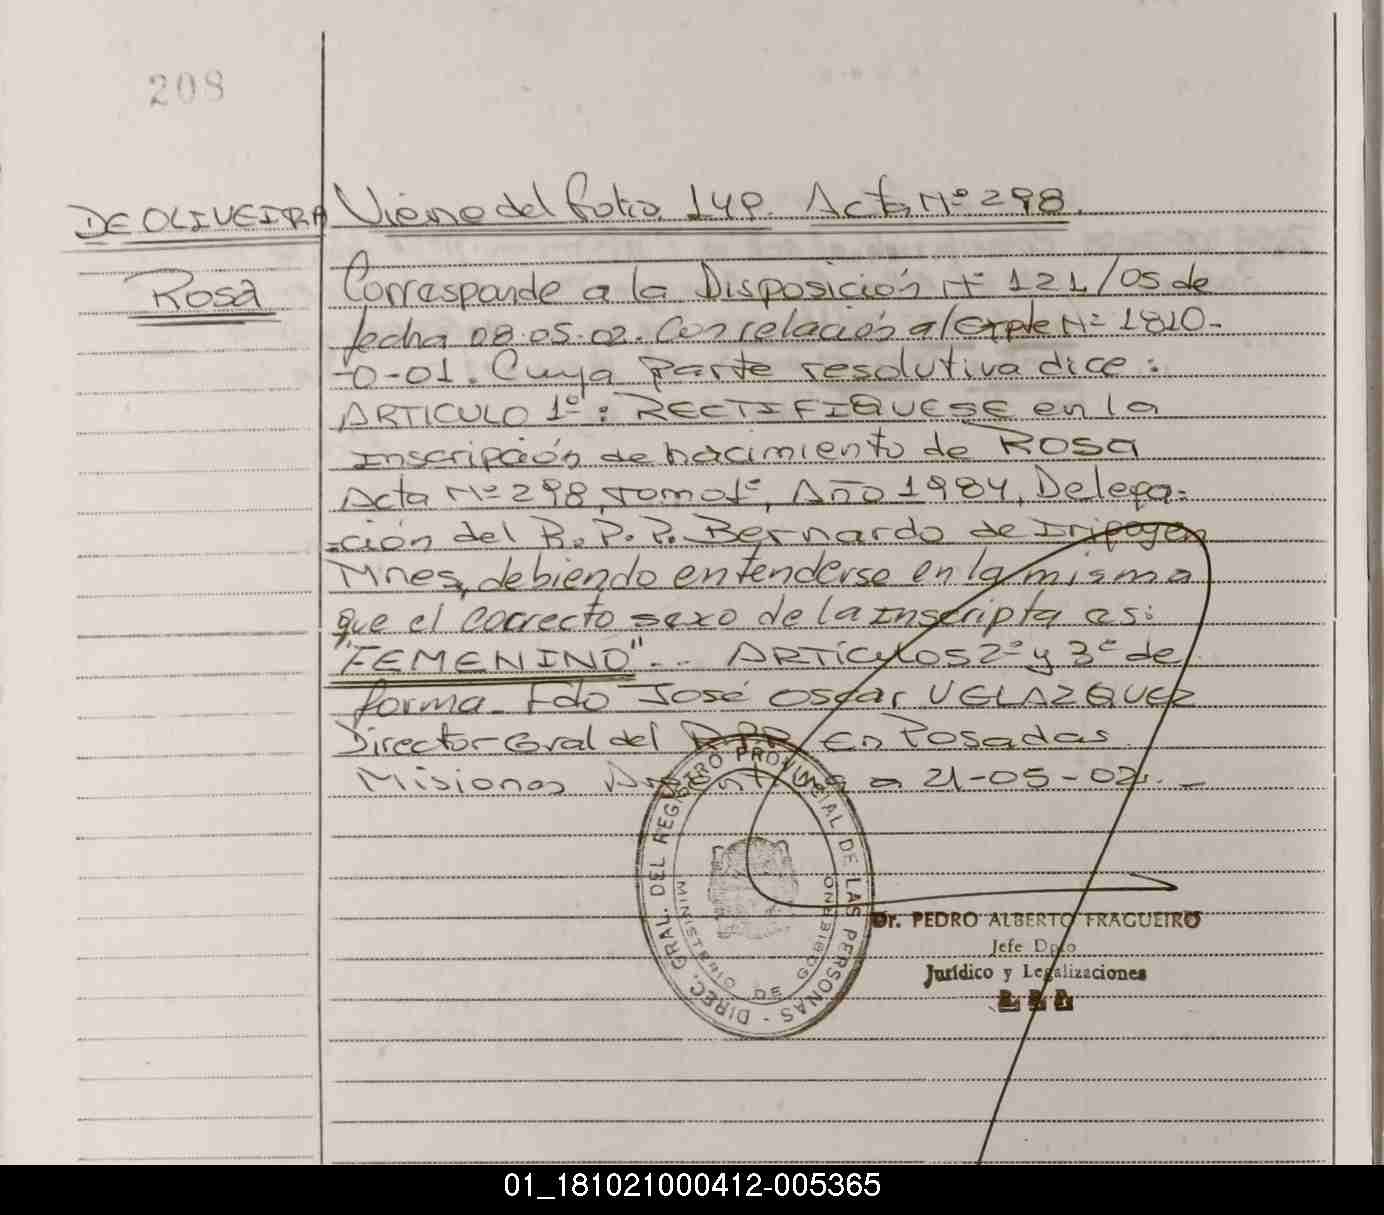 208
DE OLIVEIRA
Rosa
Viene del folio 149. Acta Nº 298.
Corresponde a la Disposición Nº 121/05 de
fecha 08.05.02. Con relación al Expte Nº 1810-
-0-01. Cuya parte resolutiva dice:
ARTICULO 1º: RECTIFIQUESE en la
Inscripción de nacimiento de ROSA
Acta Nº 298, tomo 1º, Año 1984, Delega=
=ción del R.P.P. Bernardo de Irigoyen
Mnes, debiendo entenderse en la misma
que el correcto sexo de la inscripta es:
"FEMENINO".. ARTÍCULOS 2º y 3º de
forma. Fdo José Oscar VELAZQUEZ
Director Gral del RPP En Posadas
Misiones a 21-05-02. _
DIREC. GRAL. DEL REGISTRO PROVINCIAL DE LAS PERSONAS -
MINISTERIO DE GOBIERNO
Dr. PEDRO ALBERTO FRAGUEIRO
Jefe Dpto
Jurídico y Legalizaciones
01_181021000412-005365